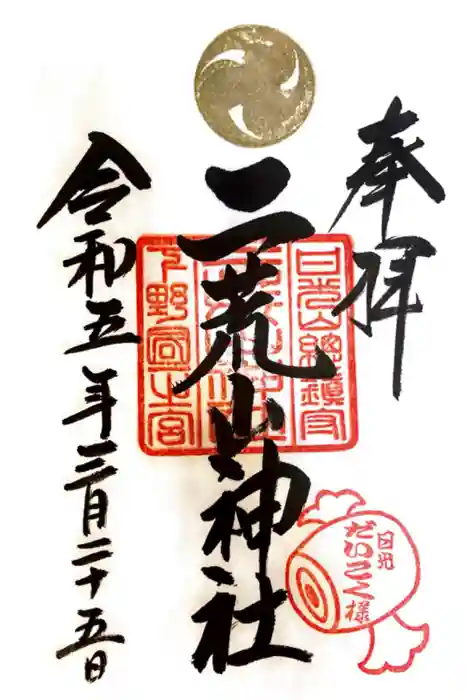 奉拝
二荒山神社
令和五年三月二十五日
日光山総鎮守
下野国一之宮
日光
だいこく様